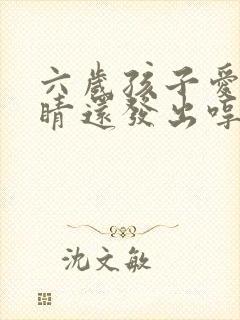 六歲孩子愛
睛還發出哼
沈文敏